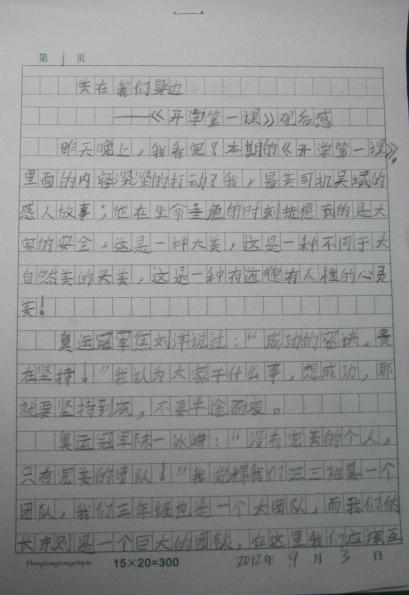 第 1 页
美在我们身边
——《开学第一课》观后感
昨天晚上，我看完了本期的《开学第一课》，
里面的内容深深的打动了我，最美司机吴斌的
感人故事；他在生命垂危的时刻 的是大
家的安全，这是一种大美，这是一种不同于大
自然美的美，这是一种有道德有人性的心灵
美！
奥运冠军焦刘洋说过：“成功的秘诀，贵
在坚持！”我认为大家干什么事，想成功，那
就要坚持到底，不要半途而废。
奥运冠军陈一冰讲：“没有完美的个人，
只有完美的团队！”我觉得我们三三班是一个
团队，我们三年级也是一个大团队，而我们的
长 是一个巨大的团队，在这里我们应该互
15×20=300
2012年9月3日